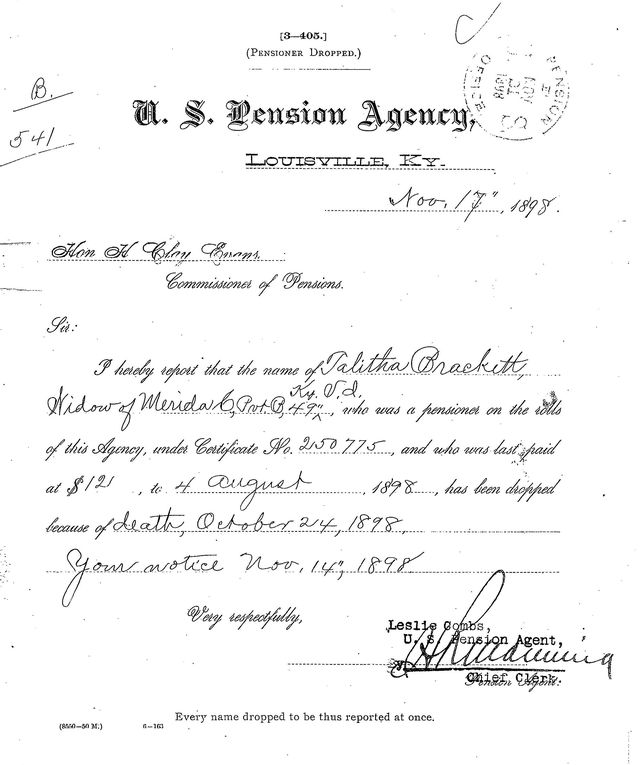 [3—405.]
(Pensioner Dropped.)
B.
541
PENSION OFFICE
NOV 21 1898
U. S. Pension Agency,
Louisville, Ky.
Nov. 17", 1898.
Hon H Clay Evans,
Commissioner of Pensions.
Sir:
I hereby report that the name of Talitha Brackett,
Ky. V. I.
Widow of Merida C, Pvt. B, 49", who was a pensioner on the rolls
of this Agency, under Certificate No. 250775, and who was last paid
at $12, to 4 August, 1898, has been dropped
because of death, October 24, 1898,
Your notice Nov. 14", 1898
Very respectfully,
Leslie Combs,
U. S. Pension Agent,
By
Chief Clerk.
Pension Agent.
Every name dropped to be thus reported at once.
(8550—50 M.) 6—163